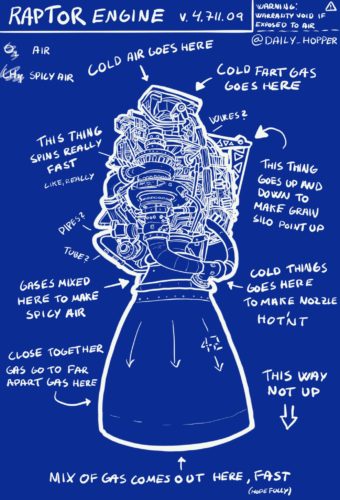 RAPTOR ENGINE v. 4.711.09
WARNING!
WARRANTY VOID IF
EXPOSED TO AIR
@DAILY_HOPPER
O₂ AIR
CH₄ SPICY AIR
COLD AIR GOES HERE
COLD FART GAS
GOES HERE
WIRES?
THIS THING
SPINS REALLY
FAST
LIKE, REALLY
THIS THING
GOES UP AND
DOWN TO
MAKE GRAIN
SILO POINT UP
PIPES?
TUBE?
GASES MIXED
HERE TO MAKE
SPICY AIR
COLD THINGS
GOES HERE
TO MAKE NOZZLE
HOT'NT
42
CLOSE TOGETHER
GAS GO TO FAR
APART GAS HERE
THIS WAY
NOT UP
MIX OF GAS COMES OUT HERE, FAST
(HOPEFULLY)